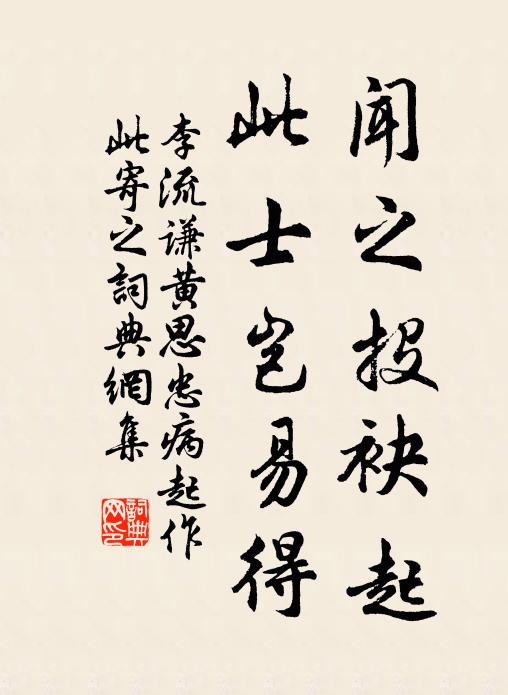 闻之投袂起
此士岂易得
李流谦黄思忠病起作
此寄之詞典網集
詞典
网印